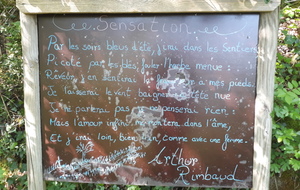 Sensation
Par les soirs bleus d'été, j'irai dans les sentiers
Picoté par les blés, fouler l'herbe menue :
Rêveur, j'en sentirai la à mes pieds.
Je laisserai le vent baigner tête nue
Je ne parlerai pas, je ne penserai rien :
Mais l'amour infini me montera dans l'âme,
Et j'irai loin, bien loin, comme avec une femme.
Arthur
Rimbaud